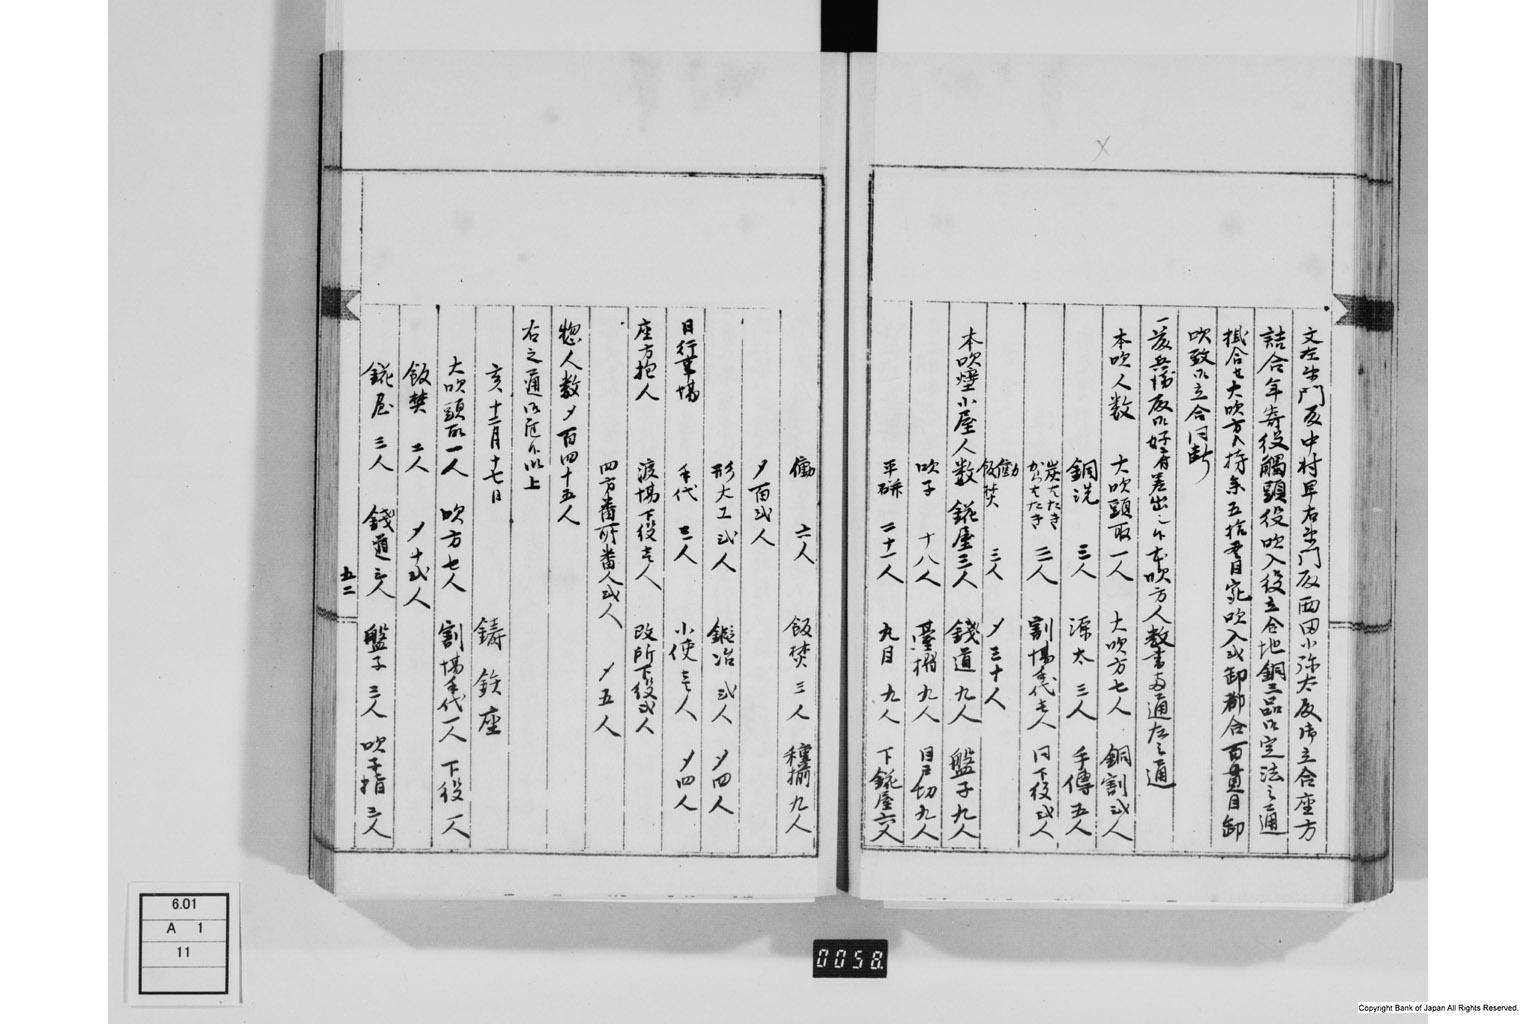 文左衛門殿中村早右衛門殿西田小弥太殿御立合座方
詰合年寄役觸頭役吹入役立合地銅三品御定法之通
掛合セ大吹方入持参五拾貫目宛吹入弐卸都合百貫目卸
吹致御立合同断
一 兵衛殿御好有差出 吹方人数書 通左之通
本吹人数 大吹頭取一人 大吹方七人 銅割弐人
銅洗 三人 源太 三人 手傳五人
炭たたき
からたたき 三人 割場手代壱人 同下役弐人
働
飯焚 三人 〆三十人
本吹 小屋人数 鋳屋三人 錢道 九人 盤子九人
吹子 十八人 臺摺 九人 目戸切九人
平研 二十一人 丸目 九人 下鋳屋六人
働 六人 飯焚 三人 種揃九人
〆百弐人
形大工弐人 鍛冶 弐人 〆四人
日行事場 手代 三人 小使壱人 〆四人
座方抱人 渡場下役壱人 改所下役弐人
四方番所番人弐人 〆五人
惣人数〆百四十五人
右之通御座候以上
亥十二月十七日 鋳銭座
大吹頭取一人 吹方七人 割場手代一人 下役一人
飯焚 二人 〆十弐人
鋳屋 三人 錢道三人 盤子 三人 吹子指 三人
五二
6.01
A 1
11
0058
Copyright Bank of Japan All Rights Reserved.